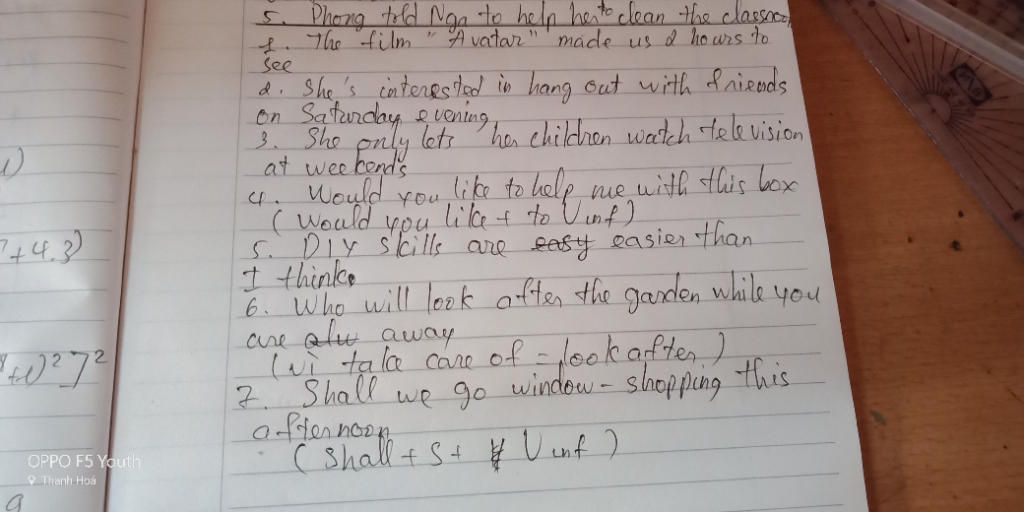 5. Phong told Nga to help her to clean the classroom
1. The film "Avatar" made us 2 hours to
see
2. She's interested in hang out with friends
on Saturday evening
3. She only lets her children watch television
at weekends
4. Would you like to help me with this box
(Would you like + to Vinf)
5. DIY skills are easy easier than
I think
6. Who will look after the garden while you
are away
(vì take care of = look after)
7. Shall we go window-shopping this
afternoon
(Shall + S + Vinf)
1)
+4.3)
+1)²]²
OPPO F5 Youth
Thanh Hoá
a